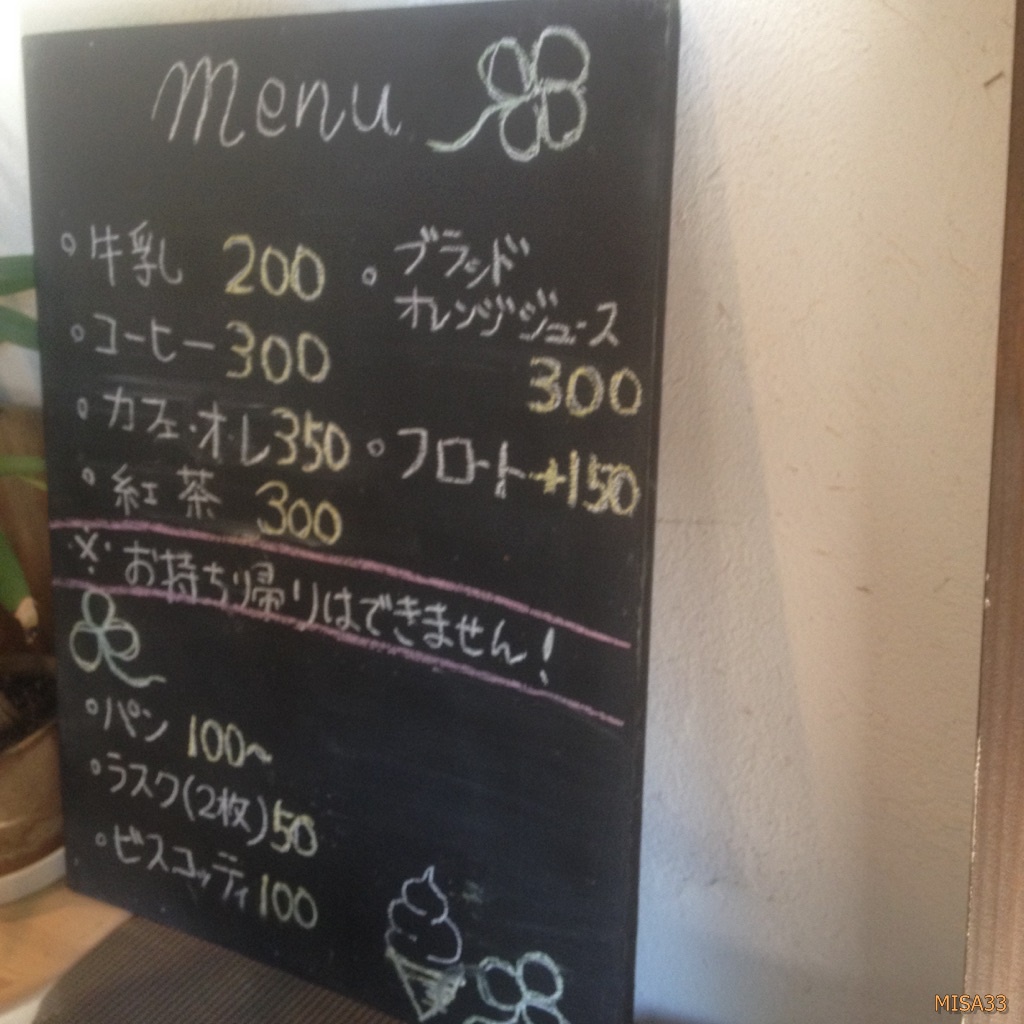 Menu
。牛乳 200
。コーヒー 300
。カフェ・オレ 350
。紅茶 300
。ブラッド
オレンジジュース
300
。フロート +150
※お持ち帰りはできません!
。パン 100~
。ラスク(2枚)50
。ビスコッティ 100
MISA33